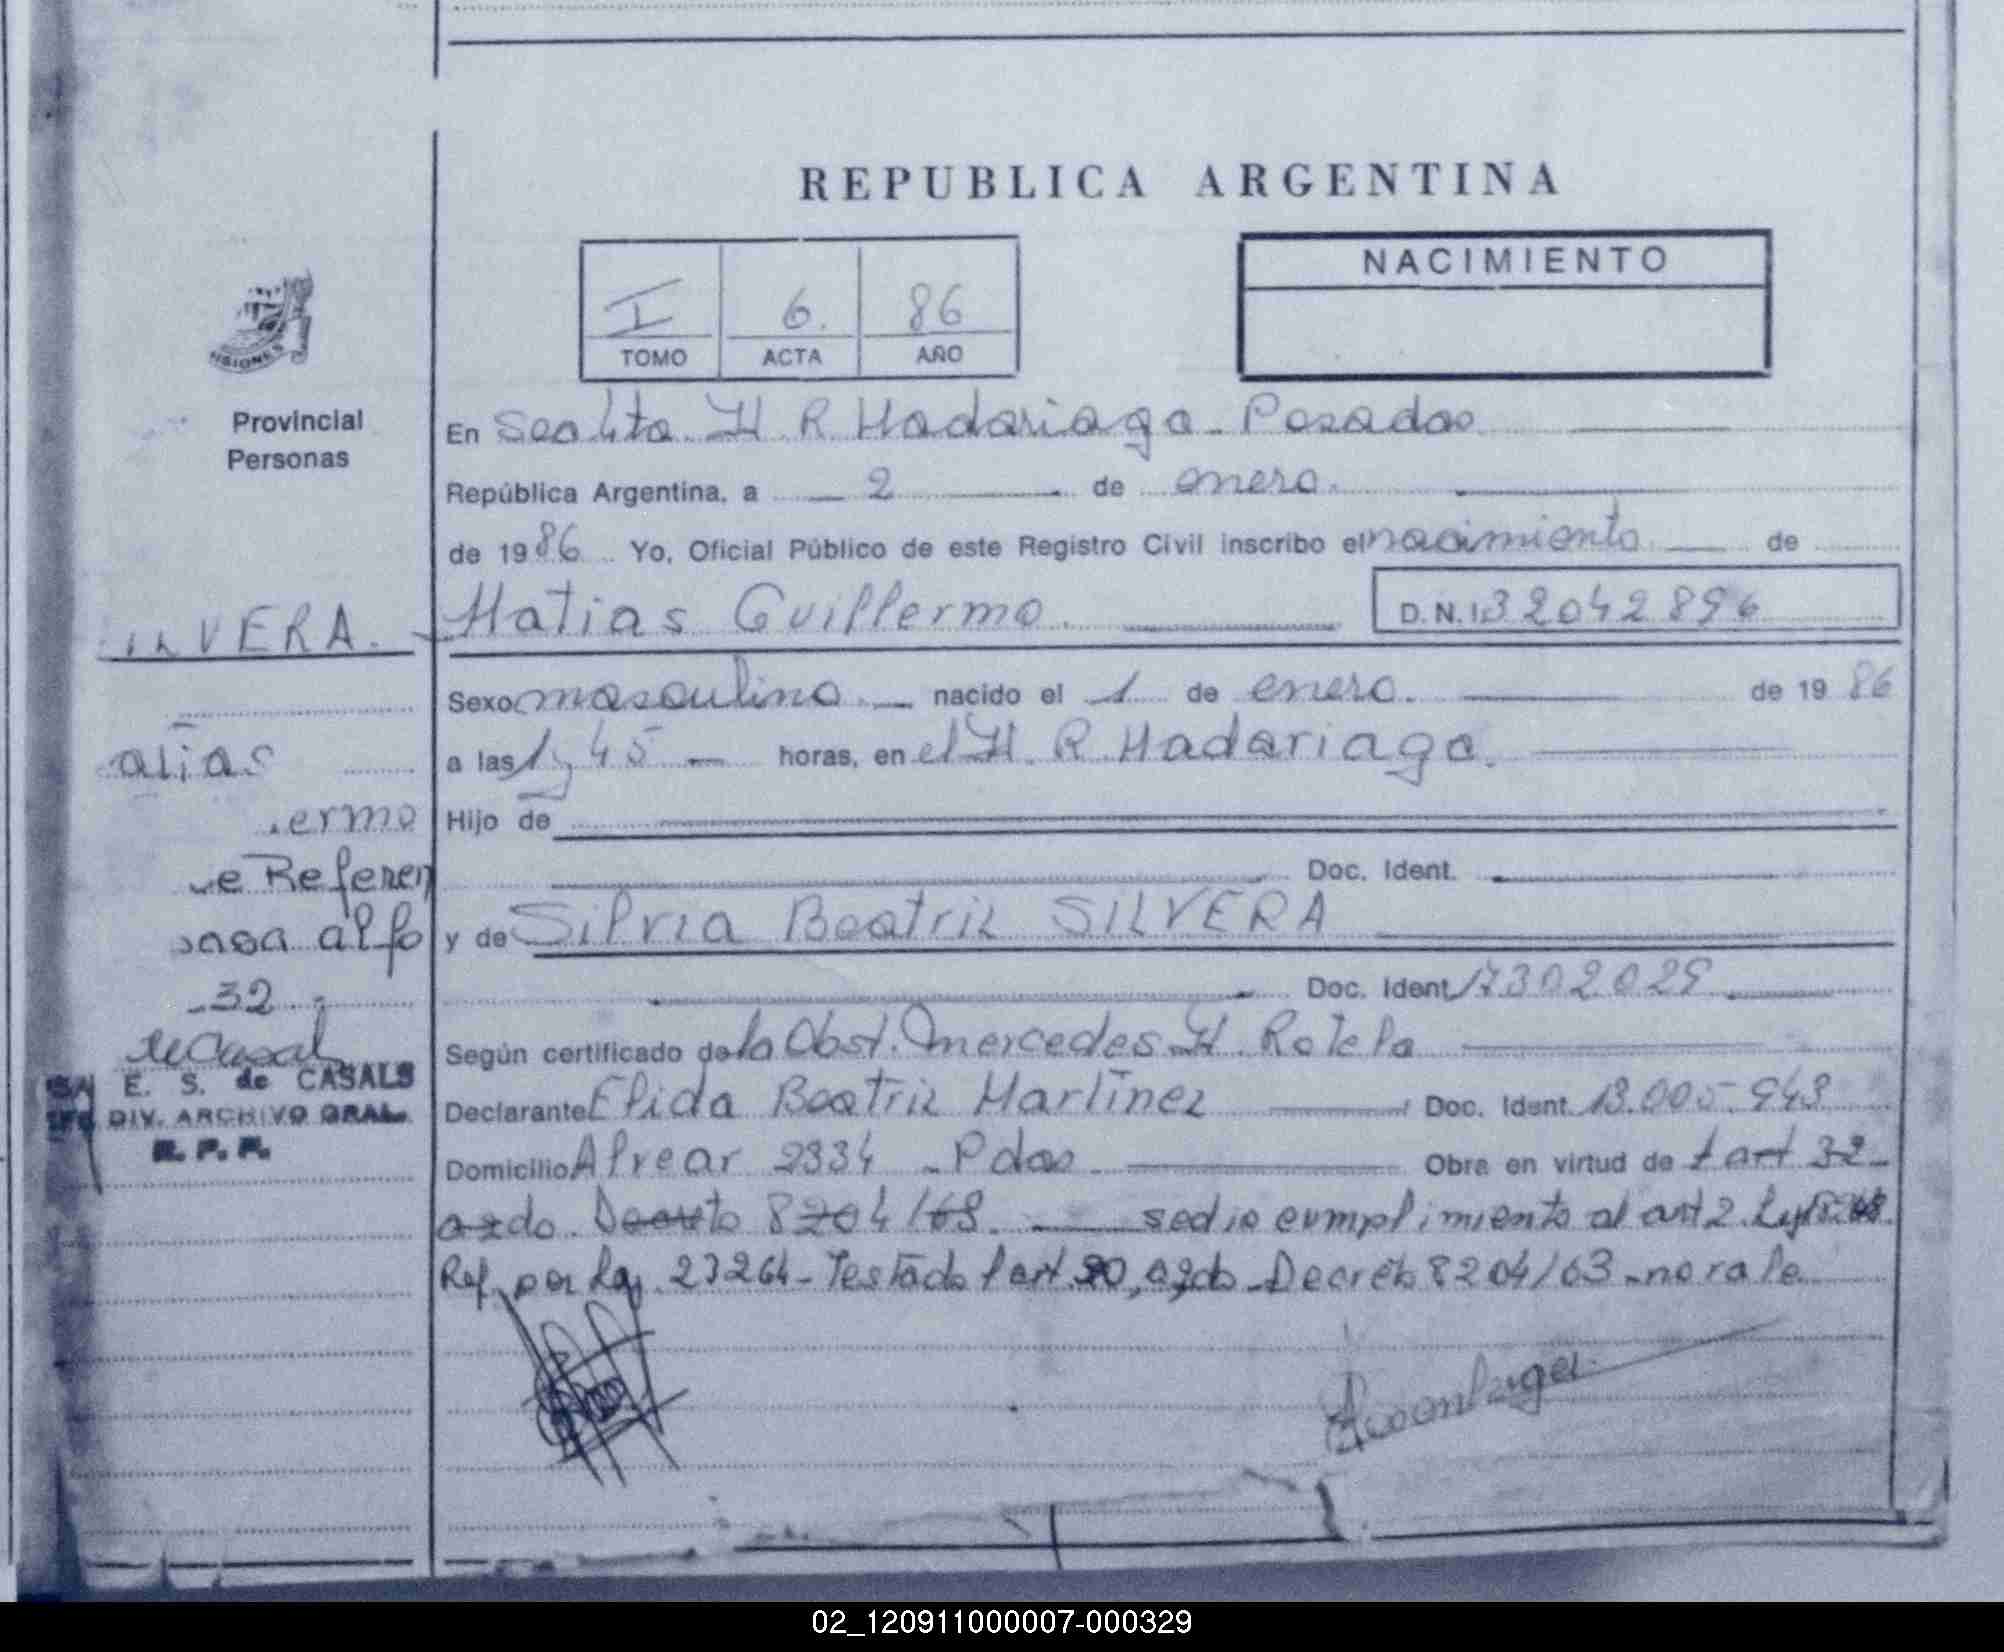 REPUBLICA ARGENTINA
I 6. 86
TOMO ACTA AÑO
NACIMIENTO
MISIONES
Provincial
Personas
En Sec 4ta. H. R. Madariaga - Posadas
República Argentina, a 2 de enero.
de 1986 Yo, Oficial Público de este Registro Civil inscribo el nacimiento de
ILVERA. - Matias Guillermo. D.N.I. 32042896
Sexo masculino. nacido el 1 de enero. de 1986
a las 1 y 45 - horas, en el H. R. Madariaga.
atias
ermo Hijo de
Doc. Ident.
e Referen
y de Silvia Beatriz SILVERA
casa al fo
32
Doc. Ident. 17302029
Según certificado de la Obst. Mercedes H. Rotela
E. S. de CASALS
DIV. ARCHIVO GRAL.
R. P. P.
Declarante Elida Beatriz Martínez Doc. Ident. 13.005.943
Domicilio Alvear 2334 - Pdas Obra en virtud de l art 32
azdo. Decreto 8204/63. se dio cumplimiento al art 2. Ley
Ref. por Ley. 23264 - Testado l art. 30, azdo - Decreto 8204/63 - no vale
02_120911000007-000329